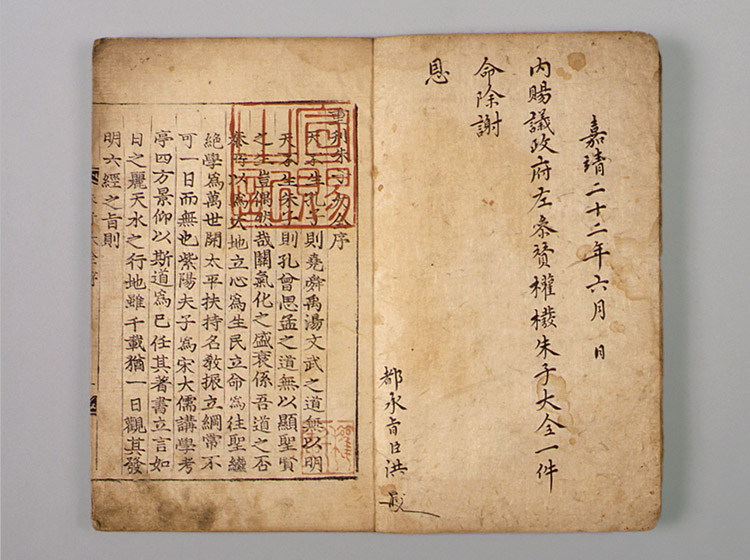 嘉靖二十二年六月 日
內賜議政府左參贊權橃朱子大全一件
命除謝
恩
都承旨臣洪
重刊朱子大全序
天不生孔子則堯舜禹湯文武之道無以明
天不生朱子則孔曾思孟之道無以顯聖賢
之生豈偶然哉關氣化之盛衰係吾道之否
泰可以為天地立心為生民立命為往聖繼
絕學為萬世開太平扶持名敎振立綱常不
可一日而無也紫陽夫子為宋大儒講學考
亭四方景仰以斯道為己任其著書立言如
日之麗天水之行地雖千載猶一日觀其發
明六經之旨則